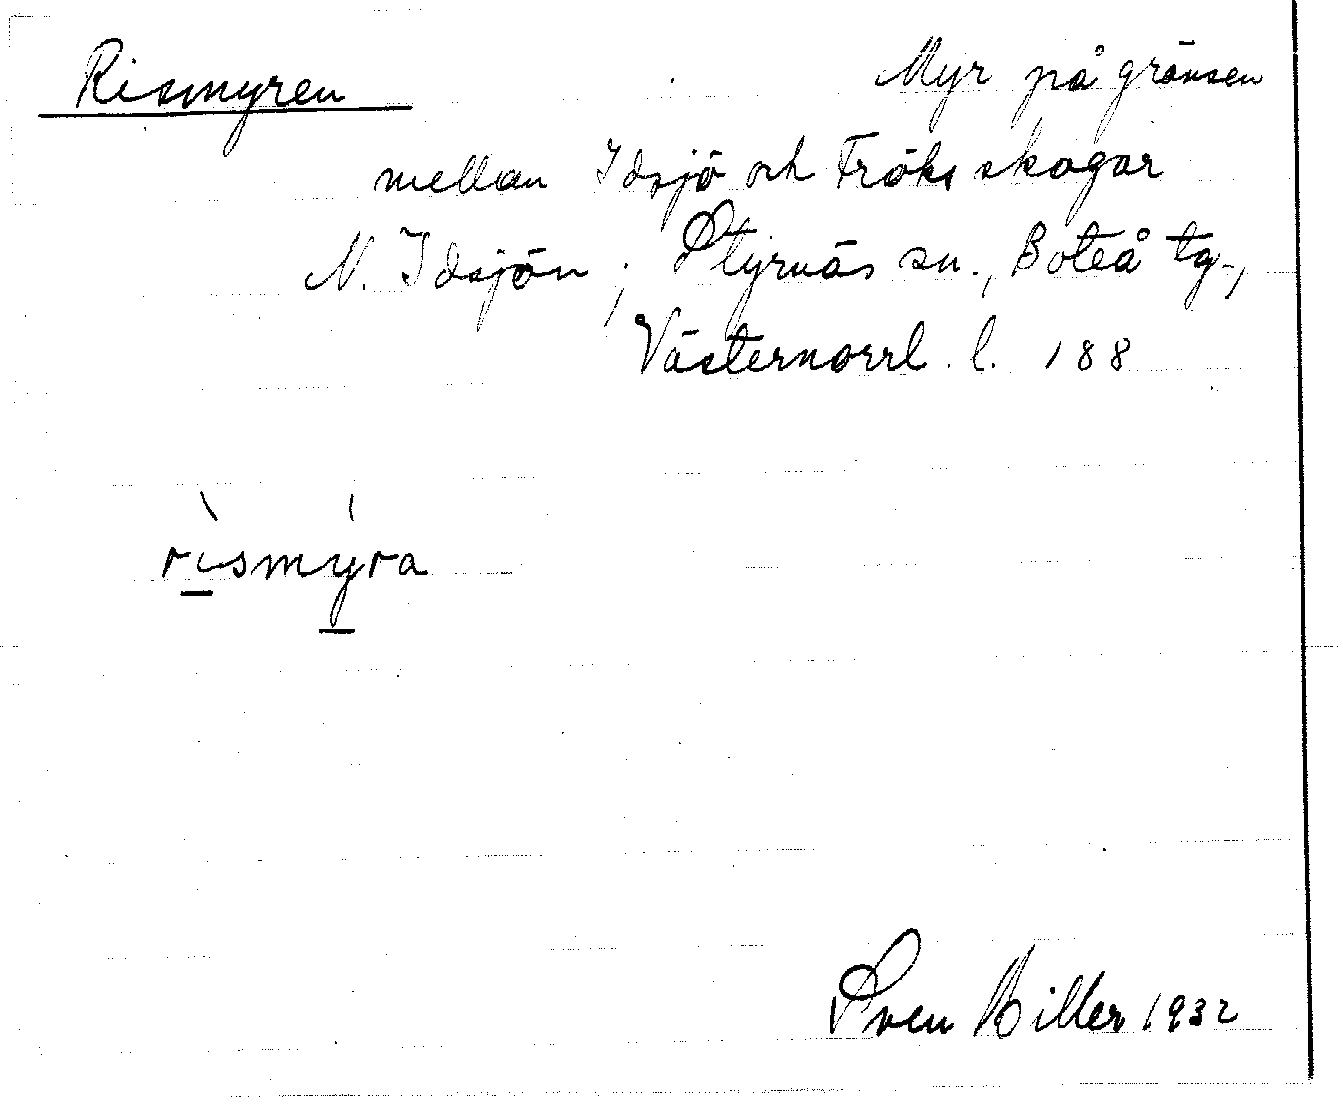 Rismyren Myr på gränsen
mellan Idsjö och Fröks skogar
N. Idsjön; Styrnäs sn., Boteå tg.,
Västernorrl. l. 188
rismyra
Sven Hiller 1932